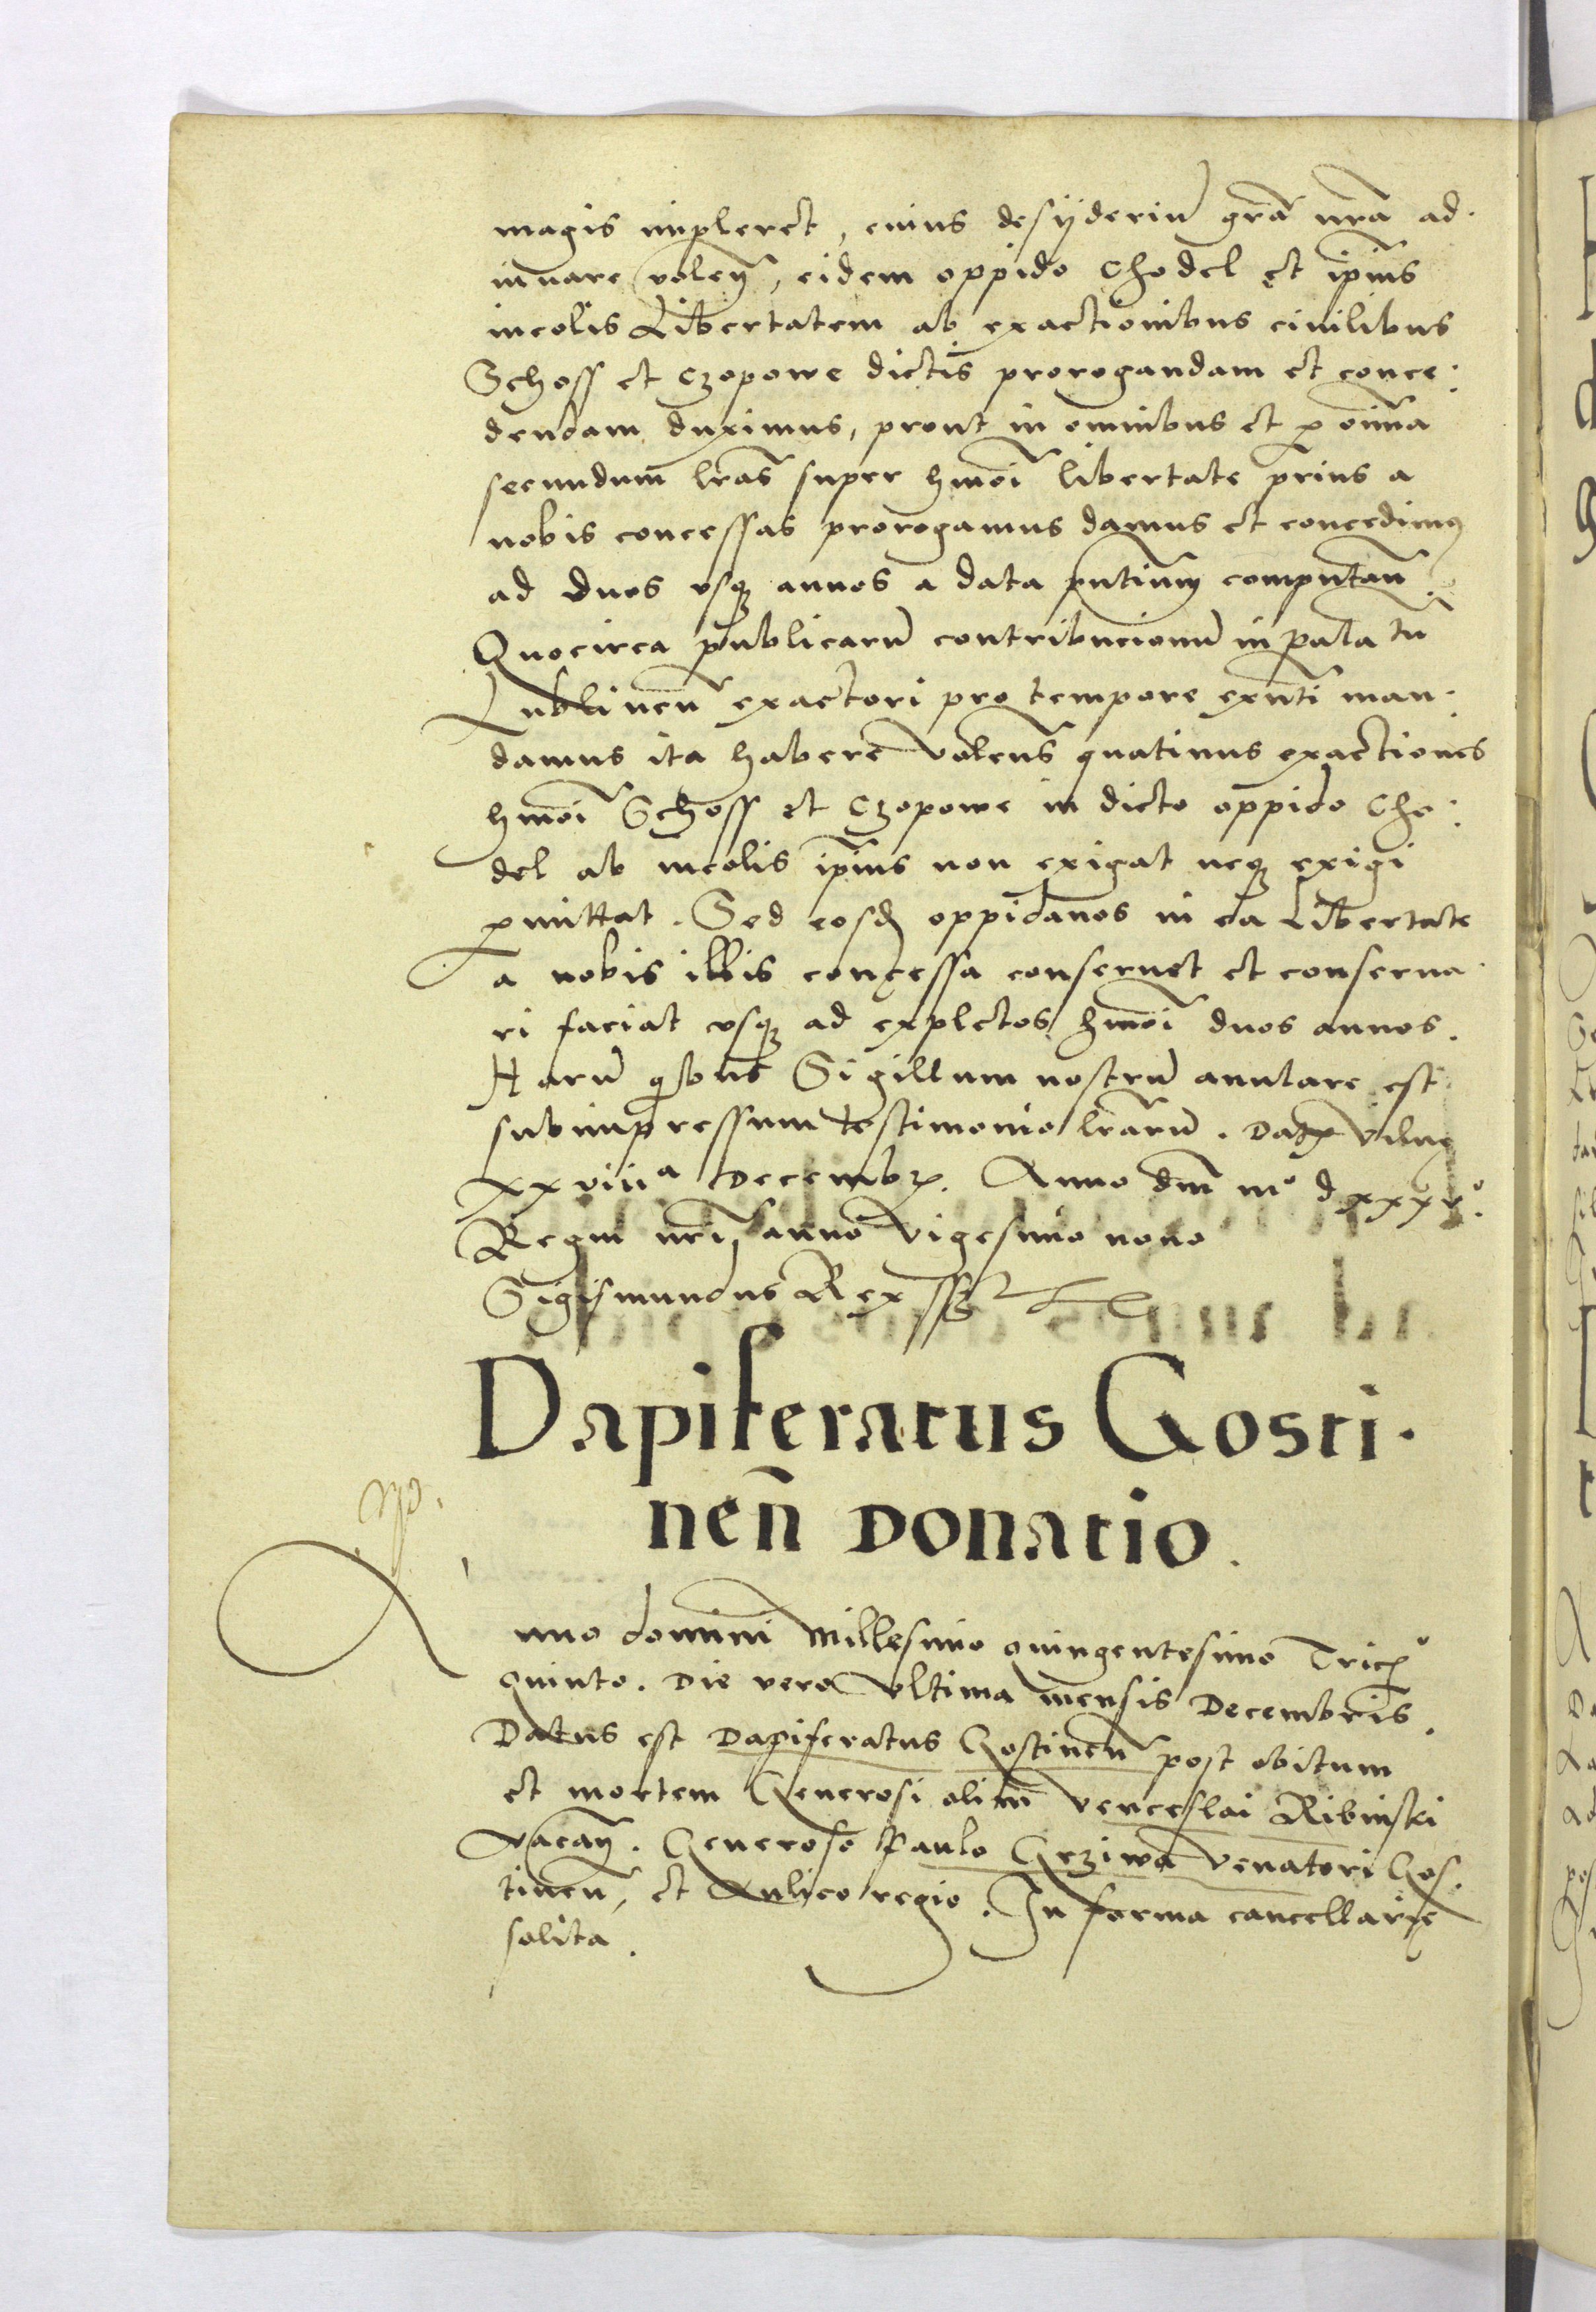 magis impleret, cuius desyderiū grā nrā ad·
iuuare volen̄, eidem oppido Chodel et ip̄ius
incolis Libertatem ab exactionibus ciuilibus
Schoss et Czopowe dictis prorogandam et conce:
dendam duximus, prout in omnibus et p om̄ia
secundum lrās super hmōi libertate prius a
nobis concessas prorogamus damus et concedimus
ad duos vsq annos a data pn̄tium computan̄.
Quocirca publicarū contribucionū in pala tu
Lublinen̄ exactori pro tempore exn̄ti man·
damus ita habere volens quatinus exactiones
hmōi Schoss et Czopowe in dicto oppido Cho:
del ab incolis ip̄ius non exigat neq exigi
pmittat. Sed eosd oppidanos in ea Libertate
a nobis illis concessa conseruet et conserua·
ri faciat vsq ad expletos hmōi duos annos.
Harū qibus Sigillum nostrū anulare est
subimpressum testimonio lrārū. Datx Vilne
xxviiia Decembrx. Anno dni mo dxxxvo.
Regni nri anno vigesimo nono
Sigismundus Rex sst
Dapiferatus Gosti·
nen̄ Donatio.
Anno domini Millesimo quingentesimo Tricxo
quinto. Die vero vltima mensis Decembris.
Datus est Dapiferatus Gostinen̄ post obitum
et mortem Generosi olim Venceslai Ribinski
vacan̄. Generoso Paulo Grziwa venatori Gos.
tinen̄, et Aulico regio. In forma cancellarie
solita.